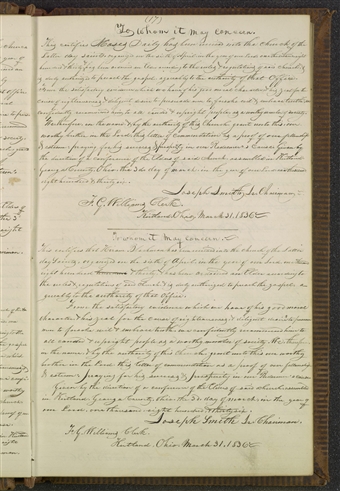 (17)
To Whom it may concern.
This certifies Moses Daily has been received into this Church of the
Latter day saints organized on the sixth of April in the year of our Lord one thousand eight
hundred & thirty & has been ordained an Elder according to the rules & regulations of said church &
is duly authorized to preach the gospel agreeably to the authority of that Office.
From the satisfactory evidence which we have of his good moral character & his zeal for the
cause of righteousness & diligent desire to persuade men to forsake evil & embrace truth we
confidently recommend him to all candid & upright people as a worthy member of society
We therefore in the name & by the authority of this Church grant unto this our
worthy brother in the Lord this letter of commendation as a proof of our fellowship
& esteem: praying for his success & prosperity in our Redeemer's Cause. Given by
the direction of a conference of the Elders of said church assembled in Kirtland
Geauga County, Ohio the 3d day of March in the year of our Lord one thousand
eight hundred & thirty six.
Joseph Smith Jr Chairman.
F. G. Williams, Clerk.
Kirtland, Ohio, March 31, 1836.
To whom it may concern.
This certifies that has been received into the church of the latter
day Saints, organized on the sixth of April in the year of our Lord one thousand
eight hundred & thirty & has been ordained an Elder according to
the rules & regulations of said church & is duly authorized to preach the gospel a-
greeably to the authority of that Office.
From the satisfactory evidence which we have of his good moral
character & his zeal for the cause of righteousness & diligent desire to persuade
men to forsake evil & embrace truth we confidently recommend him to
all candid & upright people as a worthy member of society. We therefore
in the name & by the authority of this church grant unto this our worthy
brother in the Lord this letter of commendation as a proof of our fellowship
& esteem: praying for his success & prosperity in our Redeemer's cause.
Given by the direction of a conference of the Elders of said church assembled
in Kirtland Geauga County, Ohio the 3d day of March in the year of
our Lord one thousand eight hundred & thirty six.
Joseph Smith Jr Chairman.
F. G. Williams, Clerk.
Kirtland, Ohio March 31. 1836.